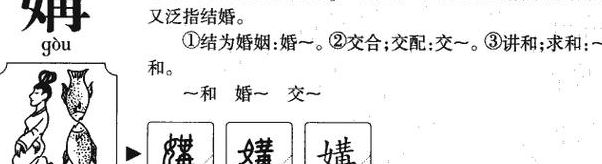 媾
gòu
又泛指结婚。
①结为婚姻:婚～。②交合;交配:交～。③讲和;求和:～
和。
～和 婚～ 交～
媾 媾 媾